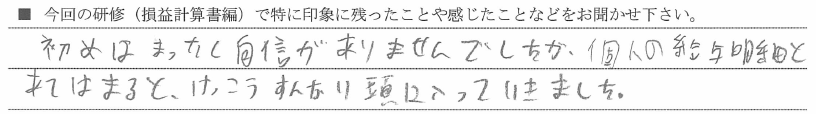 ■ 今回の研修（損益計算書編）で特に印象に残ったことや感じたことなどをお聞かせ下さい。
初めはまったく自信がありませんでしたが、個人の給与明細と
あてはまると、けっこうすんなり頭に入っていきました。